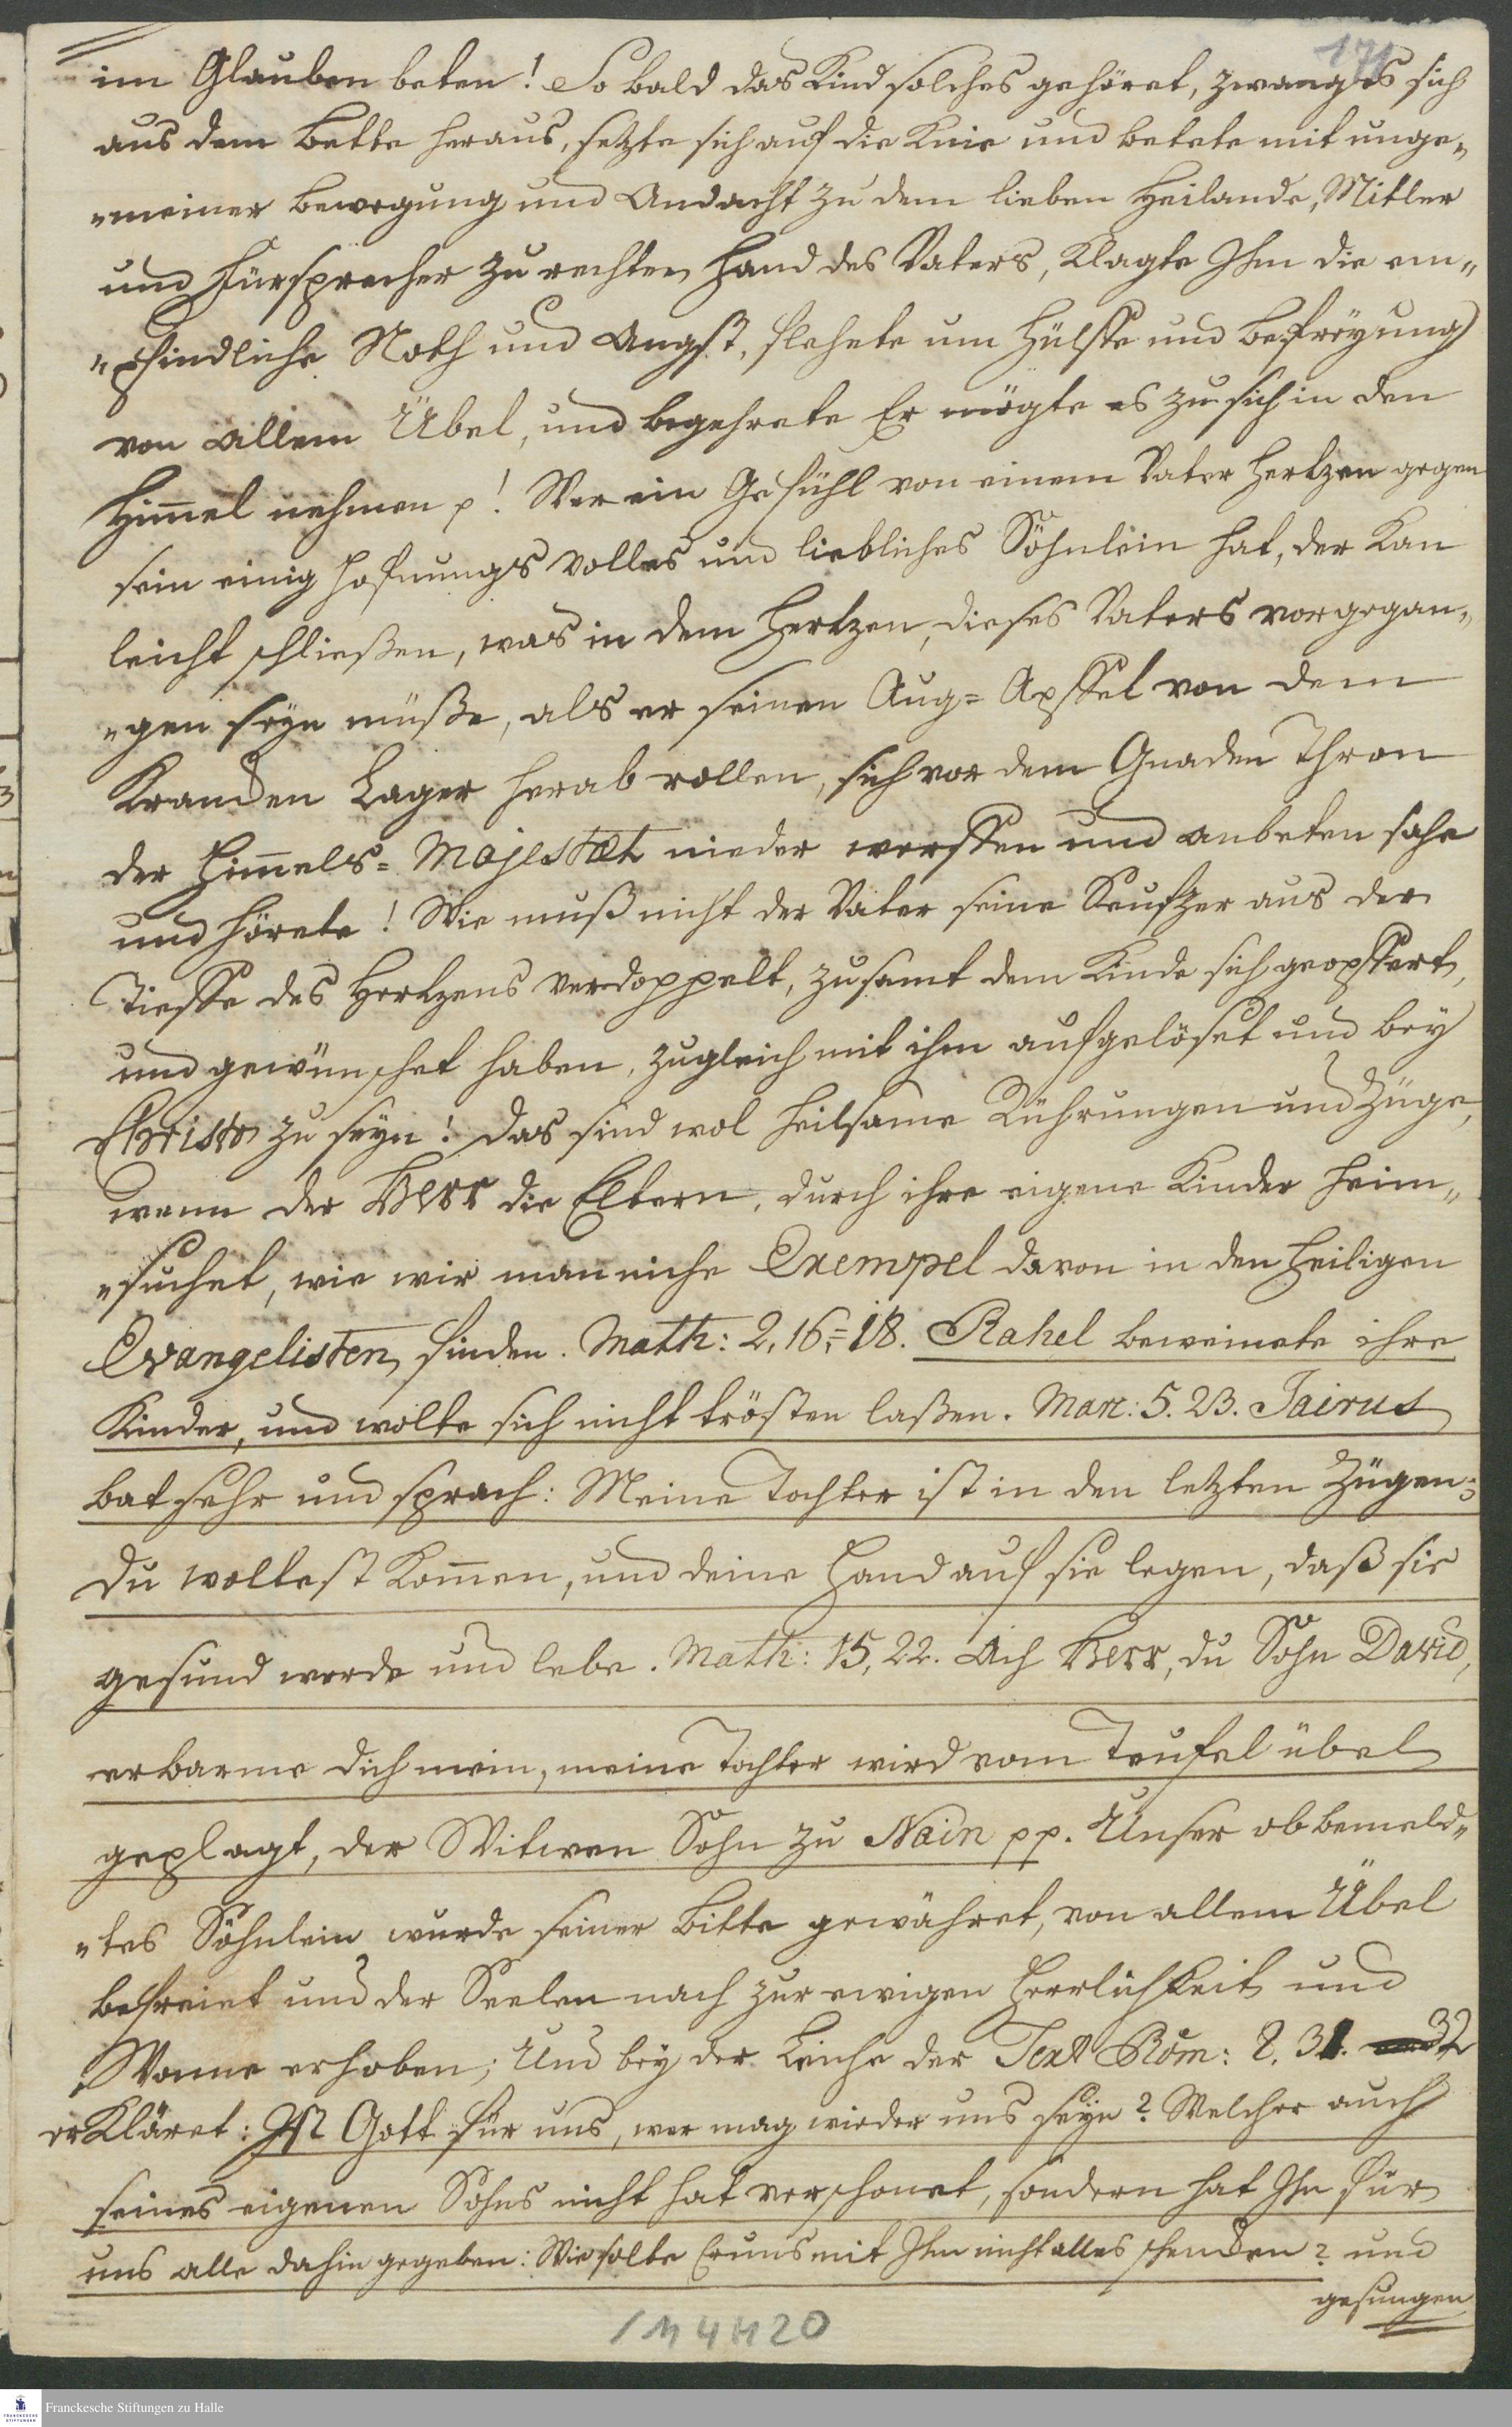 171
im Glauben beten! So bald das Kind solches gehöret, zwang es sich
aus dem Bette heraus, setzte sich auf die Knie und betete mit unge„
„meiner Bewegung und Andacht zu dem lieben Heilande, Mitler
und Fürsprecher zu rechten Hand des Vaters, klagte Ihm die em„
„pfindliche Noth und Angst, flehete um Hülffe und Befreyung
von allem Übel, und begehrete Er mögte es zu sich in den
Him̄el nehmen p! Wer ein Gefühl von einem Vater Hertzen gegen
sein einig hofnungs volles und liebliches Söhnlein hat, der kan
leicht schließen, was in dem Hertzen, dieses Vaters vorgegan„
„gen seyn müße, als er seinen Aug= Apffel von dem
Krancken Lager herab rollen, sich vor dem Gnaden Thron
der Him̄els= Majestæt nieder werffen und anbeten sahe
und hörete! Wie muß nicht der Vater seine Seufzer aus der
Tieffe des Hertzens verdoppelt, zusamt dem Kinde sich geopffert,
und gewünschet haben, zugleich mit ihm aufgelöset und bey
Christo zu seyn! Das sind wol heilsame Rührungen und Züge,
wenn der Herr die Eltern, durch ihre eigene Kinder heim„
„suchet, wie wir manniche Exempel davon in den Heiligen
Evangelisten finden. Math: 2, 16=18. Rahel beweinete ihre
Kinder, und wolte sich nicht trösten laßen. Marc: 5. 23. Jairus
bat sehr und sprach: Meine Tochter ist in den letzten Zügen:
Du wollest kom̄en, und deine Hand auf sie legen, daß sie
gesund werde und lebe. Math: 15, 22. Ach Herr, du Sohn David,
erbarme dich mein, meine Tochter wird vom Teufel übel
geplagt, der Witwen Sohn zu Nain pp. Unser obbemeld„
„tes Söhnlein wurde seiner Bitte gewähret, von allem Übel
befreiet und der Seelen nach zur ewigen Herrlichkeit und
Wonne erhoben; Und bey der Leiche der Text Röm: 8. 31. 32
erkläret: Ist Gott für uns, wer mag wieder uns seyn? Welcher auch
seines eigenen Sohns nicht hat verschonet, sondern hat Ihn für
uns alle dahin gegeben: Wie solte Er uns mit Ihm nicht alles schencken? und
gesungen
1 M 4 H 20
Franckesche Stiftungen zu Halle